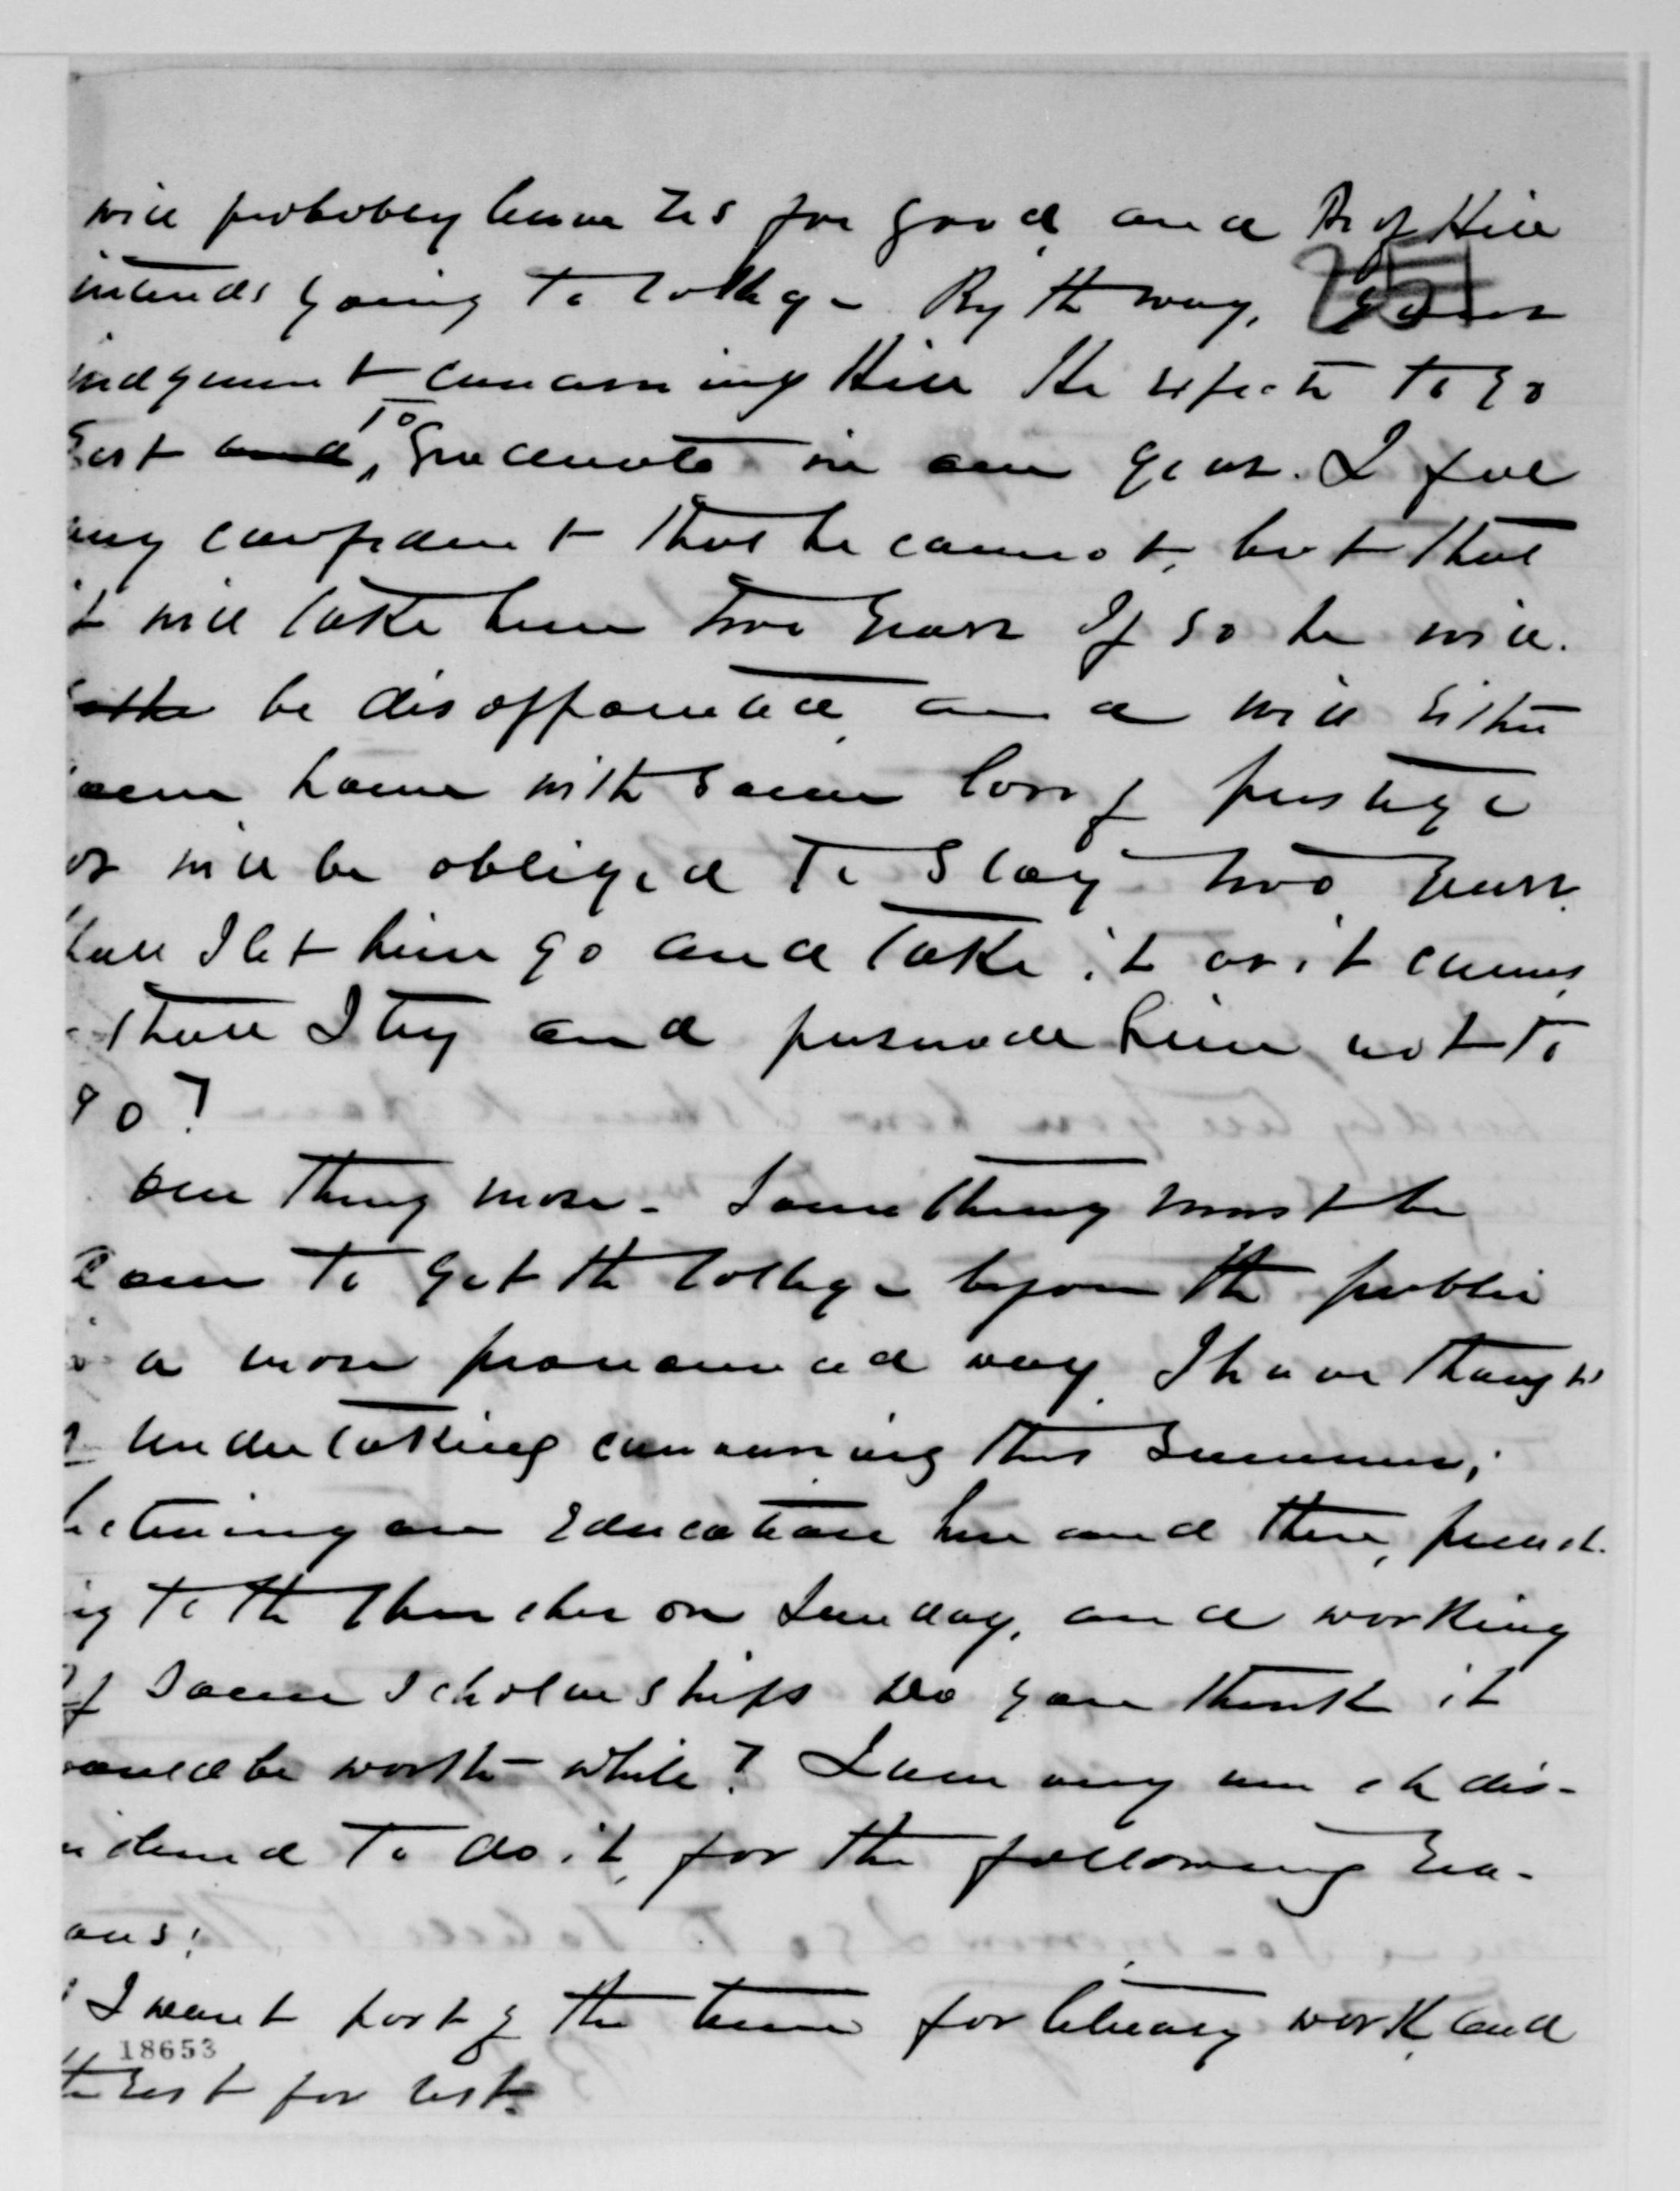 will probably leave us for good, and Prof Hill
intends going to College. By the way, your
judgement concerning Hill. He expects to go
East and, to graduate in one year. I feel
very confident that he cannot, but that
it will take him two years. If so he will
be disappointed, and will either
come home with some loss of prestige
or will be obliged to stay two years.
Shall I let him go and take it as it comes,
Shall I try and persuade him not to
go?
One thing more. Something must be
done to get the College before the public
a more pronounced way. I have thought
of undertaking canvassing this summer;
lecturing on Education here and there, preach-
ing to the churches on Sunday, and working
up some scholarships. Do you think it
would be worth-while? I am very much dis-
inclined to do it, for the following rea-
sons:
1 I want part of the time for literary work, and
18653
the rest for rest.
251